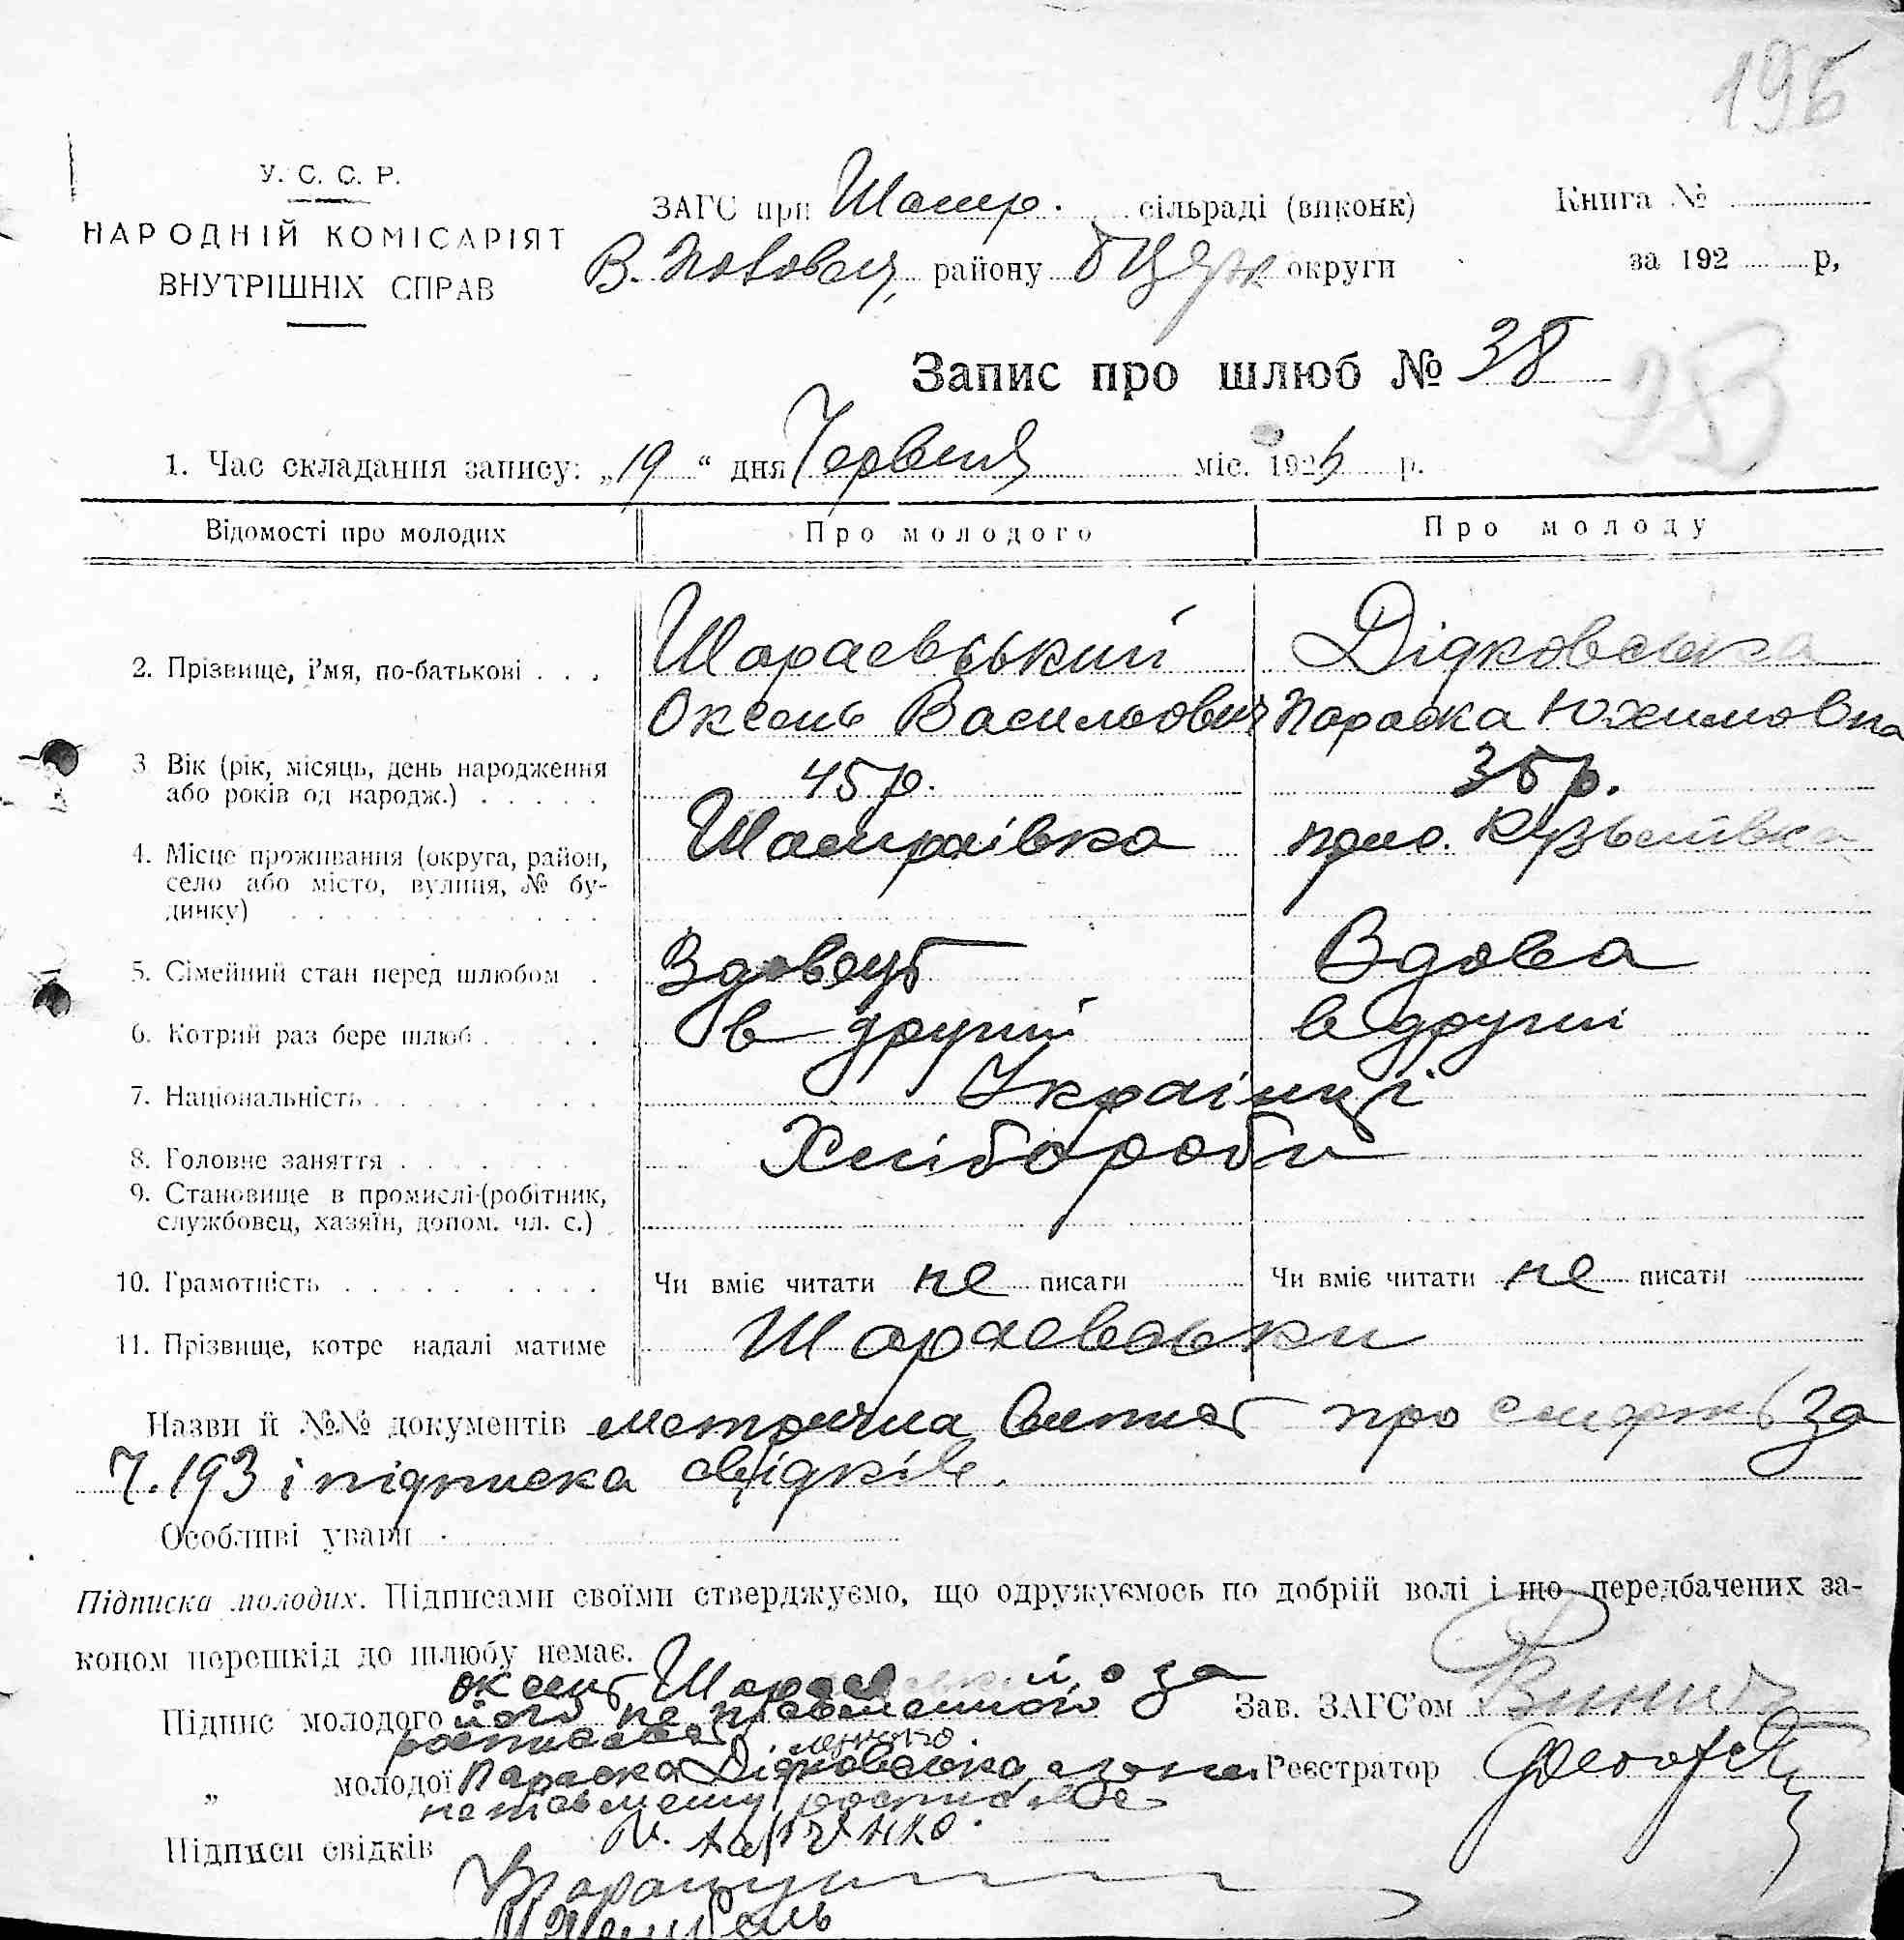 196
У. С. С. Р.
НАРОДНІЙ КОМІСАРІЯТ
ВНУТРІШНІХ СПРАВ
ЗАГС при Шамр. сільраді (виконк)
району Б Церк округи
Книга №
за 192 р,
Запис про шлюб № 38
1. Час складання запису: „19“ дня Червня міс. 192 р.
Відомості про молодих
Про молодого
Про молоду
2. Прізвище, і'мя, по-батькові . . .
Шараевський
Оксень Васильович
Дідковська
Параска Юхимовна
3 Вік (рік, місяць, день народження
або років од народж.) . . . . .
45 р.
35 р.
4. Місце проживання (округа, район,
село або місто, вулиця, № бу-
динку)
Шамраівка
Кузьмівка
5. Сімейний стан перед шлюбом .
Вдовець
Вдова
6. Котрий раз бере шлюб . . . . .
в другий
в другий
7. Національність
Украінці
8. Головне заняття
Хлібороби
9. Становище в промислі (робітник,
службовец, хазяїн, допом. чл. с.)
10. Грамотність
Чи вміє читати не писати
Чи вміє читати не писати
11. Прізвище, котре надалі матиме
Шараевськи
Назви й №№ документів метрична про смерть за
Ч. 193 і підписка свідків.
Особливі уваги
Підписка молодих. Підписами своїми стверджуємо, що одружуємось по добрій волі і що передбачених за-
коном перешкід до шлюбу немає.
Оксент за
Підпис молодого його не писменного
росписався
„ молодої Параска Дідковська, а за
неписьменну росписався
Підписи свідків
Зав. ЗАГС'ом
Реєстратор